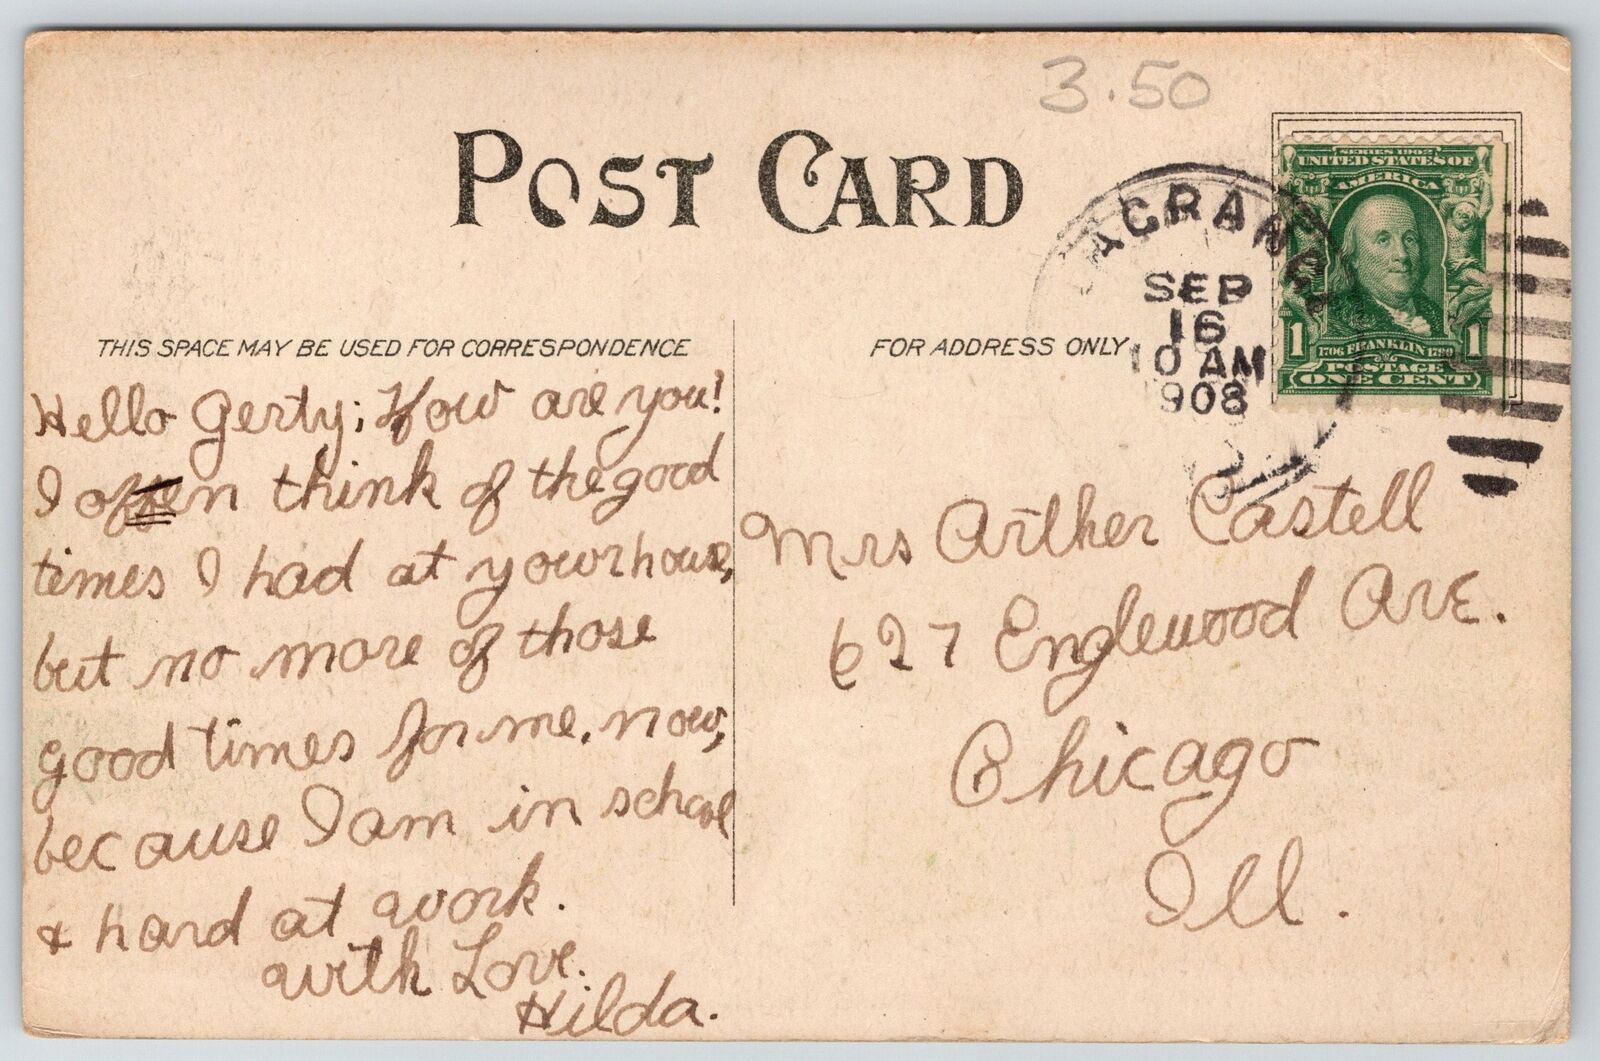 3.50
POST CARD
SERIES 1902
UNITED STATES OF
AMERICA
1 1
1706 FRANKLIN 1790
POSTAGE
ONE CENT
SEP
16
10 AM
1908
THIS SPACE MAY BE USED FOR CORRESPONDENCE
FOR ADDRESS ONLY
Hello Gerty; How are you!
I often think of the good
times I had at your house,
but no more of those
good times for me, now,
because I am in school
& hard at work.
with Love.
Hilda.
Mrs Arther Castell
627 Englewood Ave.
Chicago
Ill.